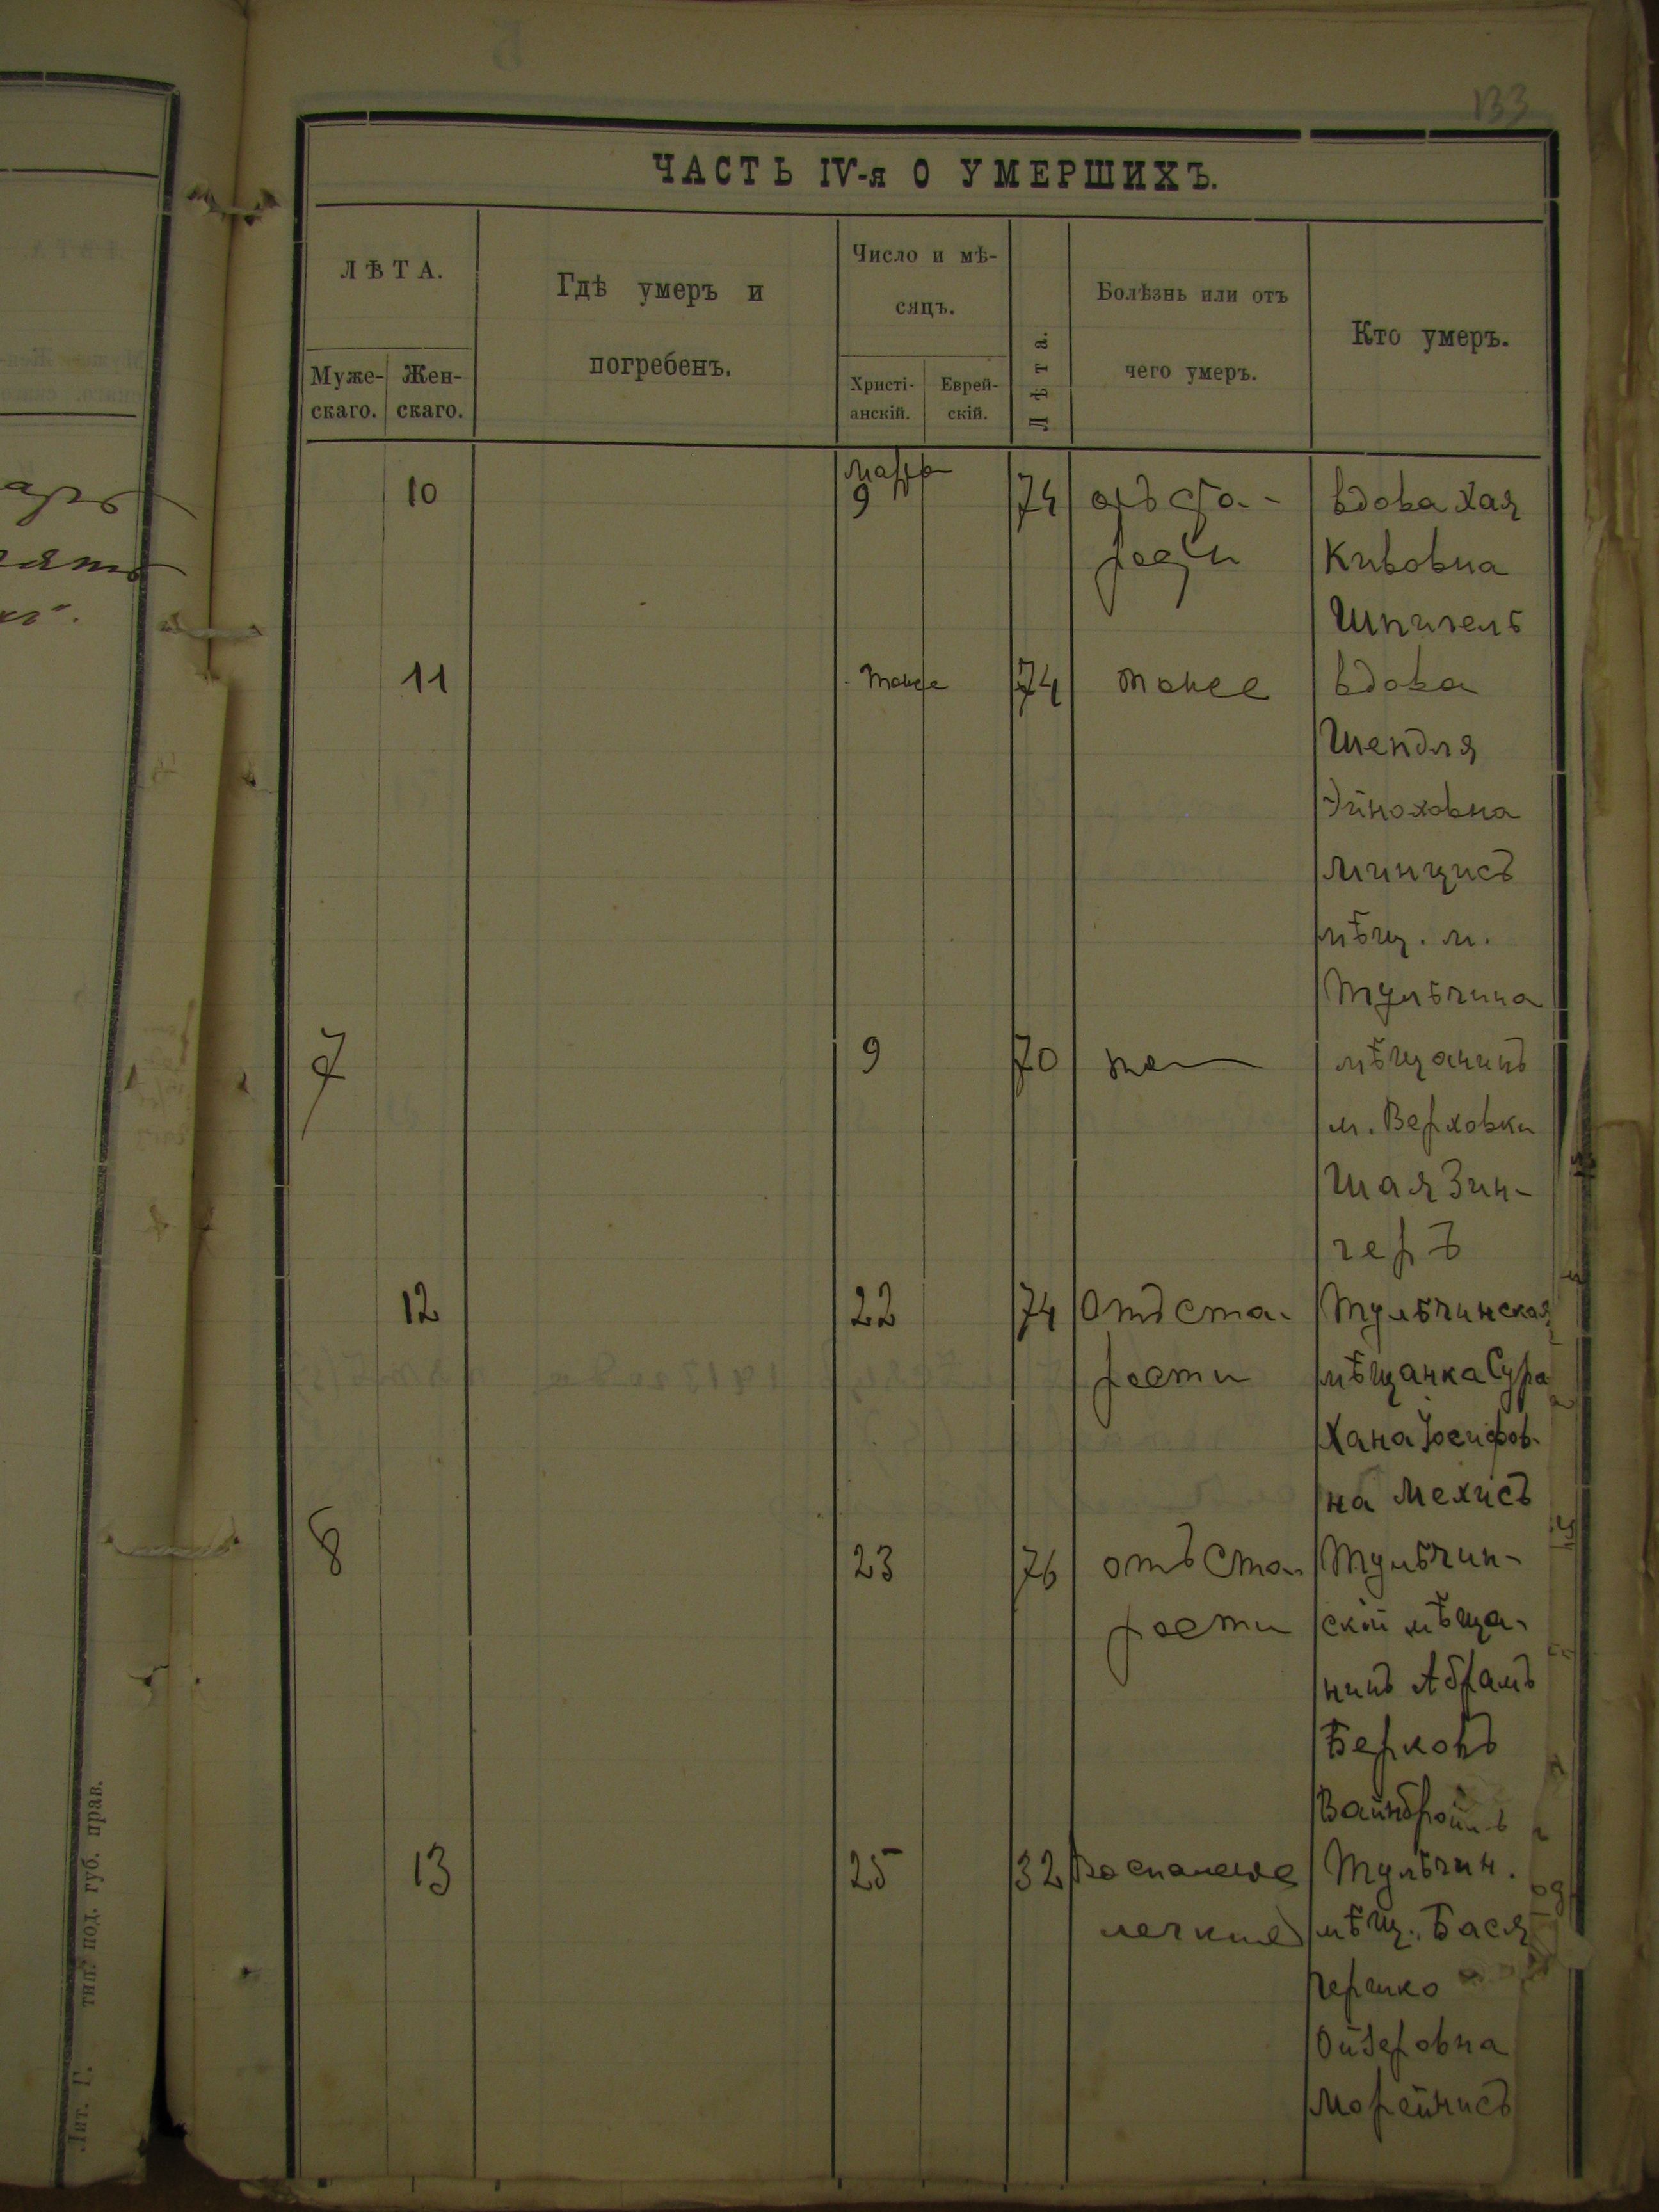 133
ЧАСТЬ IV-я О УМЕРШИХЪ.
ЛѢТА.
Муже-
скаго.
Жен-
скаго.
Гдѣ умеръ и
погребенъ.
Число и мѣ-
сяцъ.
Христі-
анскій.
Еврей-
скій.
Лѣта.
Болѣзнь или отъ
чего умеръ.
Кто умеръ.
марта
10 9 74 отъ ста- вдова Хая
рости Кивовна
Шпигель
11 тоже 74 тоже вдова
Шендля
Эйноховна
Минцисъ
мѣщ. м.
Тульчина
7 9 70 то мѣщанинъ
м. Верховки
Шая Зин-
геръ
12 22 74 Отъ ста- Тульчинская
рости мѣщанка Сура
Хана Іосифов-
на Мехисъ
8 23 76 отъ ста- Тульчин-
рости скій мѣща-
нинъ Абрамъ
Берковъ
13 25 32 Воспаление Тульчин.
легкие мѣщ. Бася
Гершко
Ойзеровна
Морейнисъ
Лит. Г. тип. под. губ. прав.